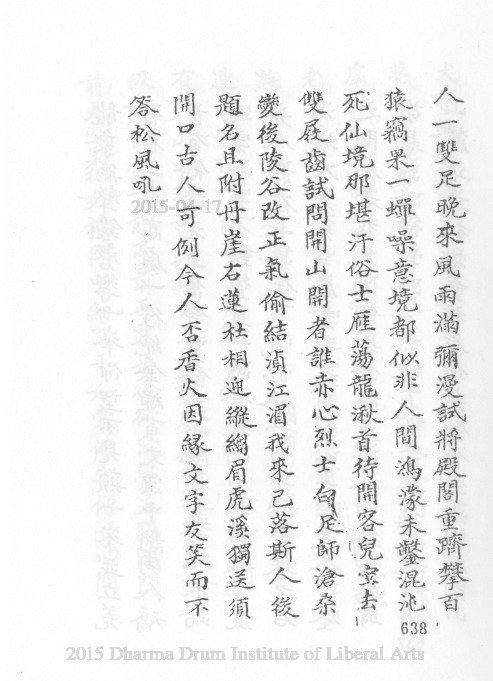 人一雙足晚來風雨滿彌漫試將殿閣重躋攀百
猿竊果一蟬噪意境都似非人間鴻濛未鑿混沌
死仙境那堪汗俗士雁蕩龍湫首待開客兒
去
雙屐齒試問開山開者誰赤心烈士白足師滄桑
變後陵谷改正氣偷結湞江湄我來已落斯人後
題名且附丹崖右蓮杜相迎縱縐眉虎溪獨送須
開口古人可例今人否香火因緣文字友笑而不
答松風吼
2015-04-17
638
2015 Dharma Drum Institute of Liberal Arts